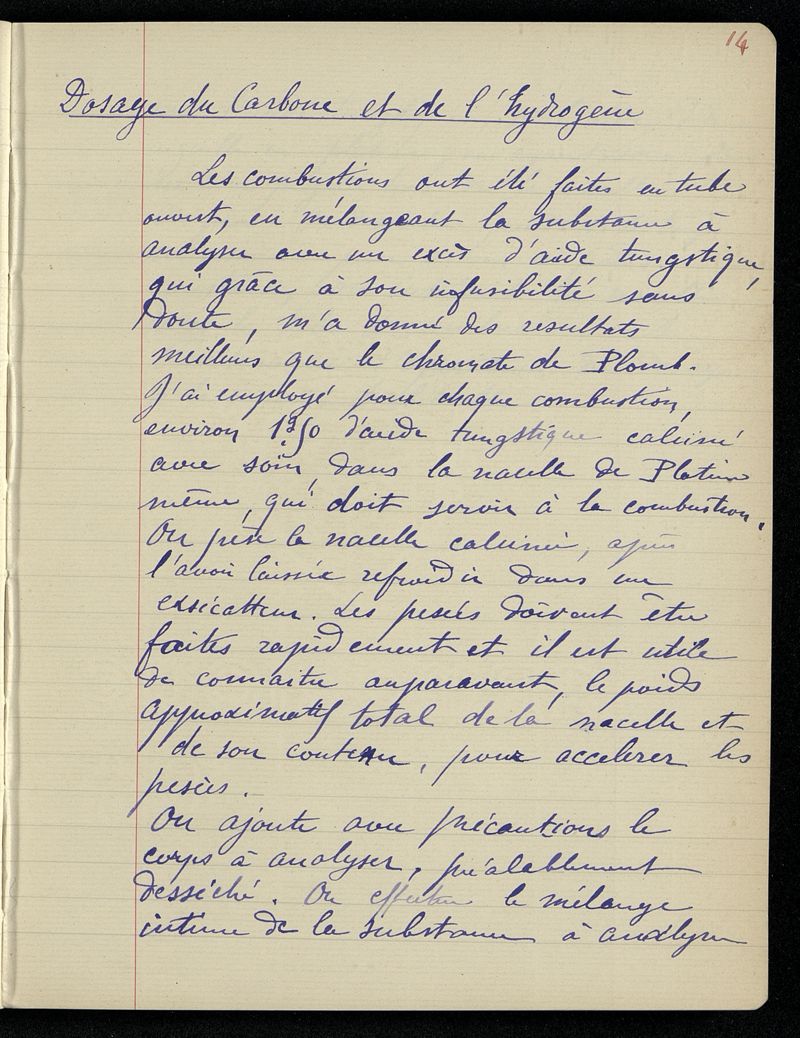 14
Dosage du Carbone et de l'hydrogène
Les combustions ont été faites en tube
ouvert, en mélangeant la substance à
analyser avec un excès d'acide tungstique,
qui grâce à son infusibilité sans
doute, m'a donné des resultats
meilleurs que le chromate de Plomb.
J'ai employé pour chaque combustion,
environ 1g50 d'acide tungstique calciné
avec soin, dans la nacelle de Platine
même, qui doit servir à la combustion.
On pèse la nacelle calcinée, après
l'avoir laissée refroidir dans un
exsicatteur. Les pesées doivent être
faites rapidement et il est utile
de connaitre auparavant, le poids
approximatif total de la nacelle et
de son contenu, pour accelerer les
pesées.
On ajoute avec précautions le
corps à analyser, préalablement
desséché. On effectue le mélange
intime de la substance à analyser